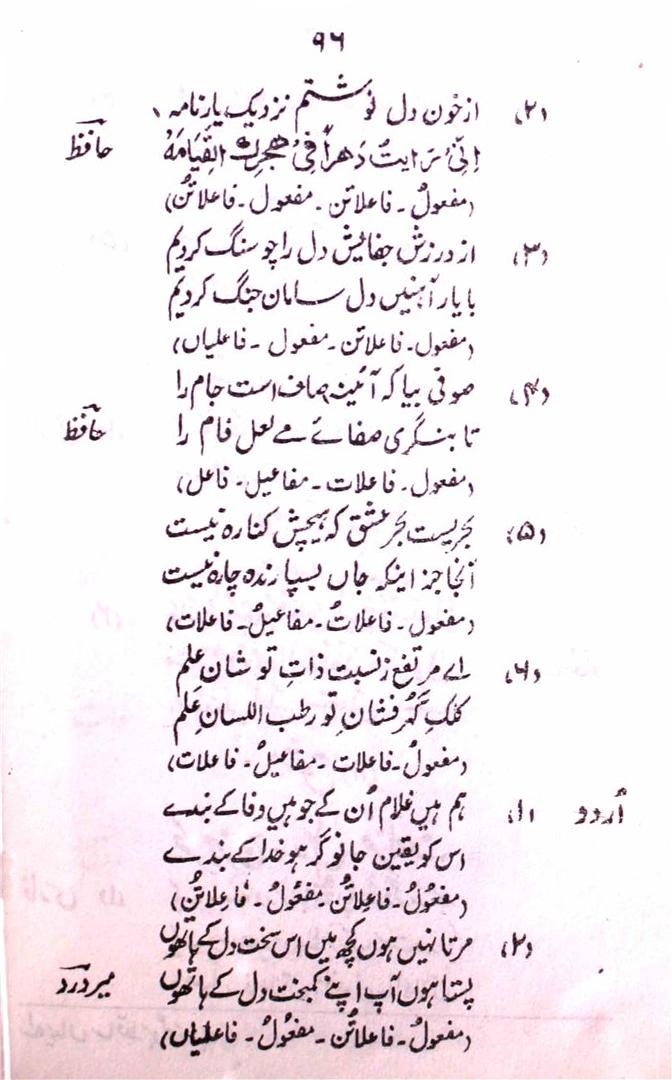 ۹۶
(۲) از خون دل نوشتم نزدیک یار نامہ
اِنِّیْ رَایتُ دَھراً فِیْ ھجرِكَ القِیَامَهْ حافظ
(مفعولُ ۔ فاعلاتن ۔ مفعول ۔ فاعلاتن)
(۳) از درزش جفایش دل را چو سنگ کردیم
با یار آہنیں دل سامان جنگ کردیم
(مفعول ۔ فاعلاتن ۔ مفعول ۔ فاعلیاں)
(۴) صوفی بیا کہ آئینہ صاف است جام را
تا بنگری صفائے مے لعل فام را حافظ
(مفعول ۔ فاعلات ۔ مفاعیل ۔ فاعل)
(۵) بحریست بحر عشق کہ ہیچش کنارہ نیست
آنجا جز اینکہ جاں بسپارند چارہ نیست
(مفعول ۔ فاعلاتُ ۔ مفاعیلُ ۔ فاعلات)
(۶) اے مرتفع ز نسبت ذاتِ تو شان عِلم
کلکِ گہُر فشانِ تو رطب اللسان عِلم
(مفعولُ ۔ فاعلات ۔ مفاعیلُ ۔ فاعلات)
اُردو (۱) ہم ہیں غلام اُن کے جو ہیں وفا کے بندے
اس کو یقین جانو گر ہو خدا کے بندے
(مفعُولُ ۔ فاعِلاتُن مفعُولُ ۔ فاعِلاتُن)
(۲) مرتا نہیں ہوں کچھ میں اس سخت دل کے ہاتھوں
پستا ہوں آپ اپنے کمبخت دل کے ہاتھوں میر درد
(مفعولُ ۔ فاعلاتُن ۔ مفعُولُ ۔ فاعلیاں)